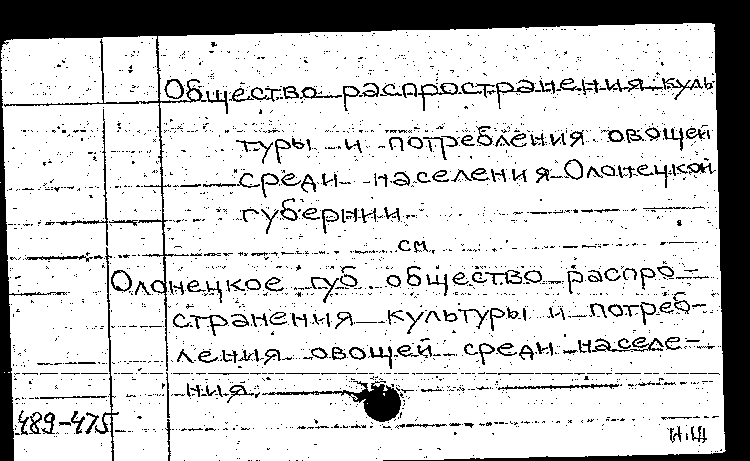 Общество распространения куль
туры и потребления овощей
среди населения Олонецкой
губернии
см.
Олонецкое губ. общество распро-
странения культуры и потреб-
ления овощей среди населе-
ния.
489-475
Н.Щ